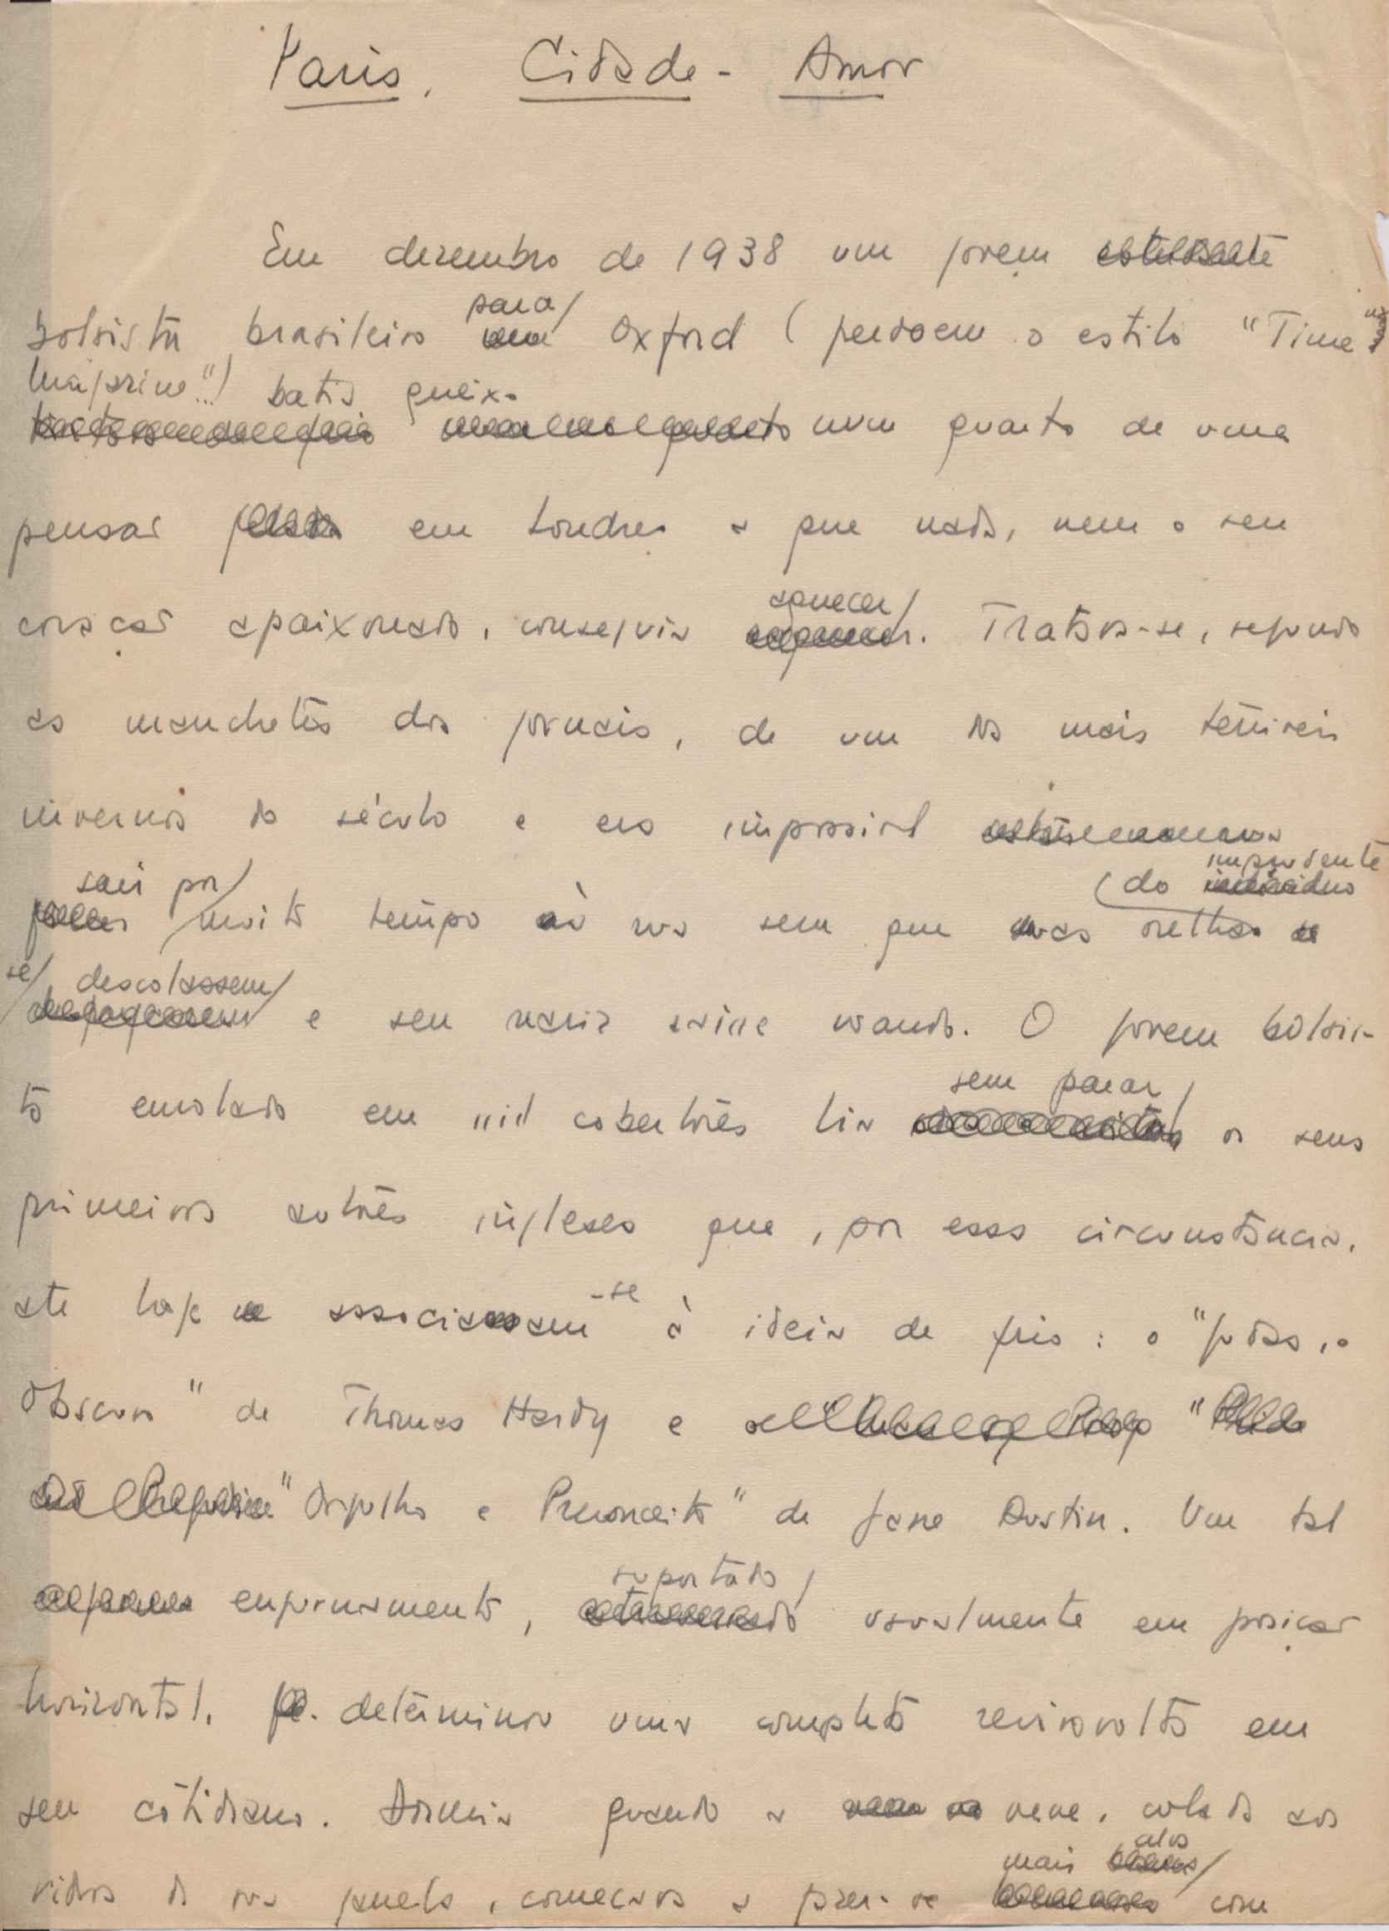 Paris, Cidade-Amor
Em dezembro de 1938 um jovem estudante
bolsista brasileiro para Oxford (perdoem o estilo "Time
Magazine"!) batia queixo
num quarto de uma
pensão em Londres a que nada, nem o seu
coração apaixonado, conseguia aquecer. Tratava-se, segundo
as manchetes dos jornais, de um dos mais terríveis
invernos do século e era impossível
sair por muito tempo à rua sem que suas orelhas (do imprudente
se descolassem e seu nariz saisse voando. O jovem bolsis-
ta enrolado em mil cobertores lia sem parar os seus
primeiros autores ingleses que, por essa circunstância,
até hoje associam-se à ideia de frio: o "Judas, o
Obscuro" de Thomas Hardy e
"Orgulho e Preconceito" de Jane Austin. Um tal
enfurnamento, suportado usualmente em posição
horizontal, determinou uma completa reviravolta em
seu cotidiano. Dormia quando a neve, colada aos
vidros da sua janela, começava a fazer-se mais alva com